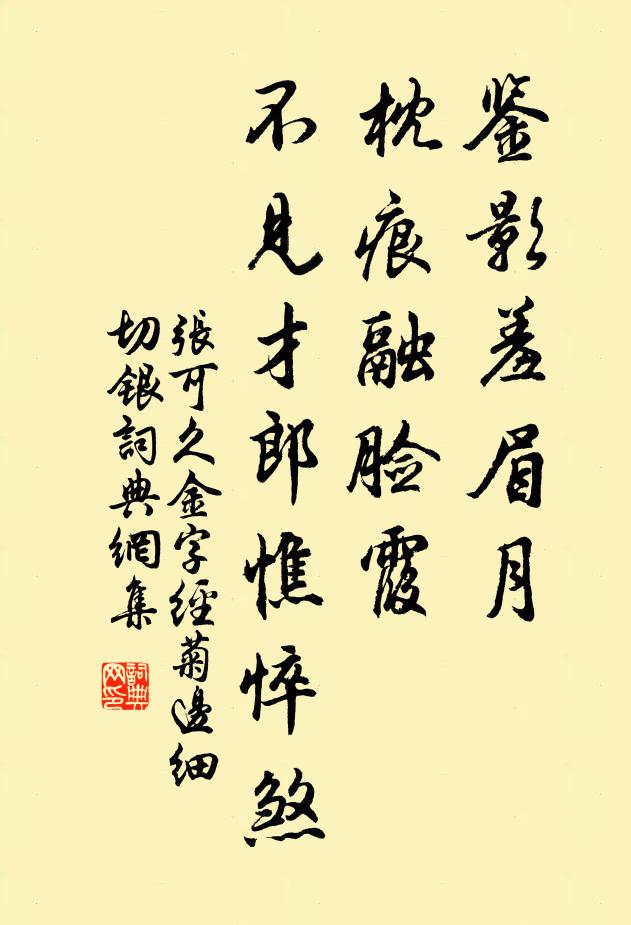 鉴影羞眉月
枕痕融脸霞
不见才郎憔悴煞
張可久金字經菊邊細
切銀詞典網集
詞典
网印